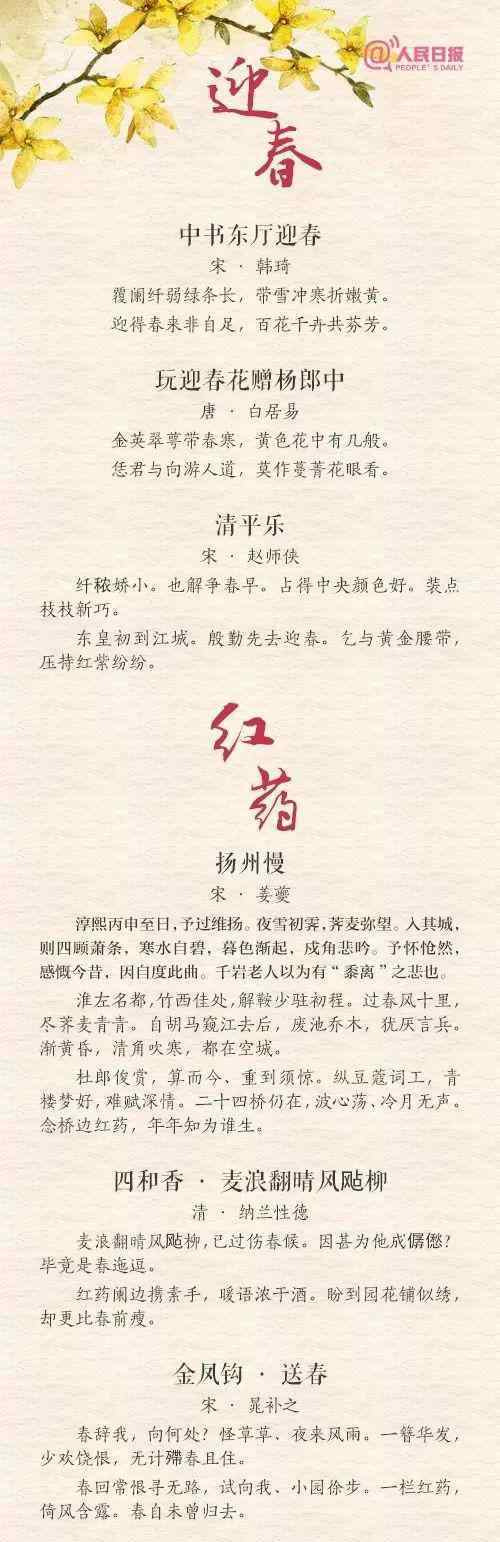 @人民日报
PEOPLE'S DAILY
迎春
中书东厅迎春
宋 · 韩琦
覆阑纤弱绿条长，带雪冲寒折嫩黄。
迎得春来非自足，百花千卉共芬芳。
玩迎春花赠杨郎中
唐 · 白居易
金英翠萼带春寒，黄色花中有几般。
恁君与向游人道，莫作蔓菁花眼看。
清平乐
宋 · 赵师侠
纤秾娇小。也解争春早。占得中央颜色好。装点
枝枝新巧。
东皇初到江城。殷勤先去迎春。乞与黄金腰带，
压持红紫纷纷。
红药
扬州慢
宋 · 姜夔
淳熙丙申至日，予过维扬。夜雪初霁，荠麦弥望。入其城，
则四顾萧条，寒水自碧，暮色渐起，戍角悲吟。予怀怆然，
感慨今昔，因自度此曲。千岩老人以为有“黍离”之悲也。
淮左名都，竹西佳处，解鞍少驻初程。过春风十里，
尽荠麦青青。自胡马窥江去后，废池乔木，犹厌言兵。
渐黄昏，清角吹寒，都在空城。
杜郎俊赏，算而今、重到须惊。纵豆蔻词工，青
楼梦好，难赋深情。二十四桥仍在，波心荡、冷月无声。
念桥边红药，年年知为谁生。
四和香 · 麦浪翻晴风飐柳
清 · 纳兰性德
麦浪翻晴风飐柳，已过伤春候。因甚为他成僝僽？
毕竟是春迤逗。
红药阑边携素手，暖语浓于酒。盼到园花铺似绣，
却更比春前瘦。
金凤钩 · 送春
宋 · 晁补之
春辞我，向何处？怪草草、夜来风雨。一簪华发，
少欢饶恨，无计殢春且住。
春回常恨寻无路，试向我、小园徐步。一栏红药，
倚风含露。春自未曾归去。